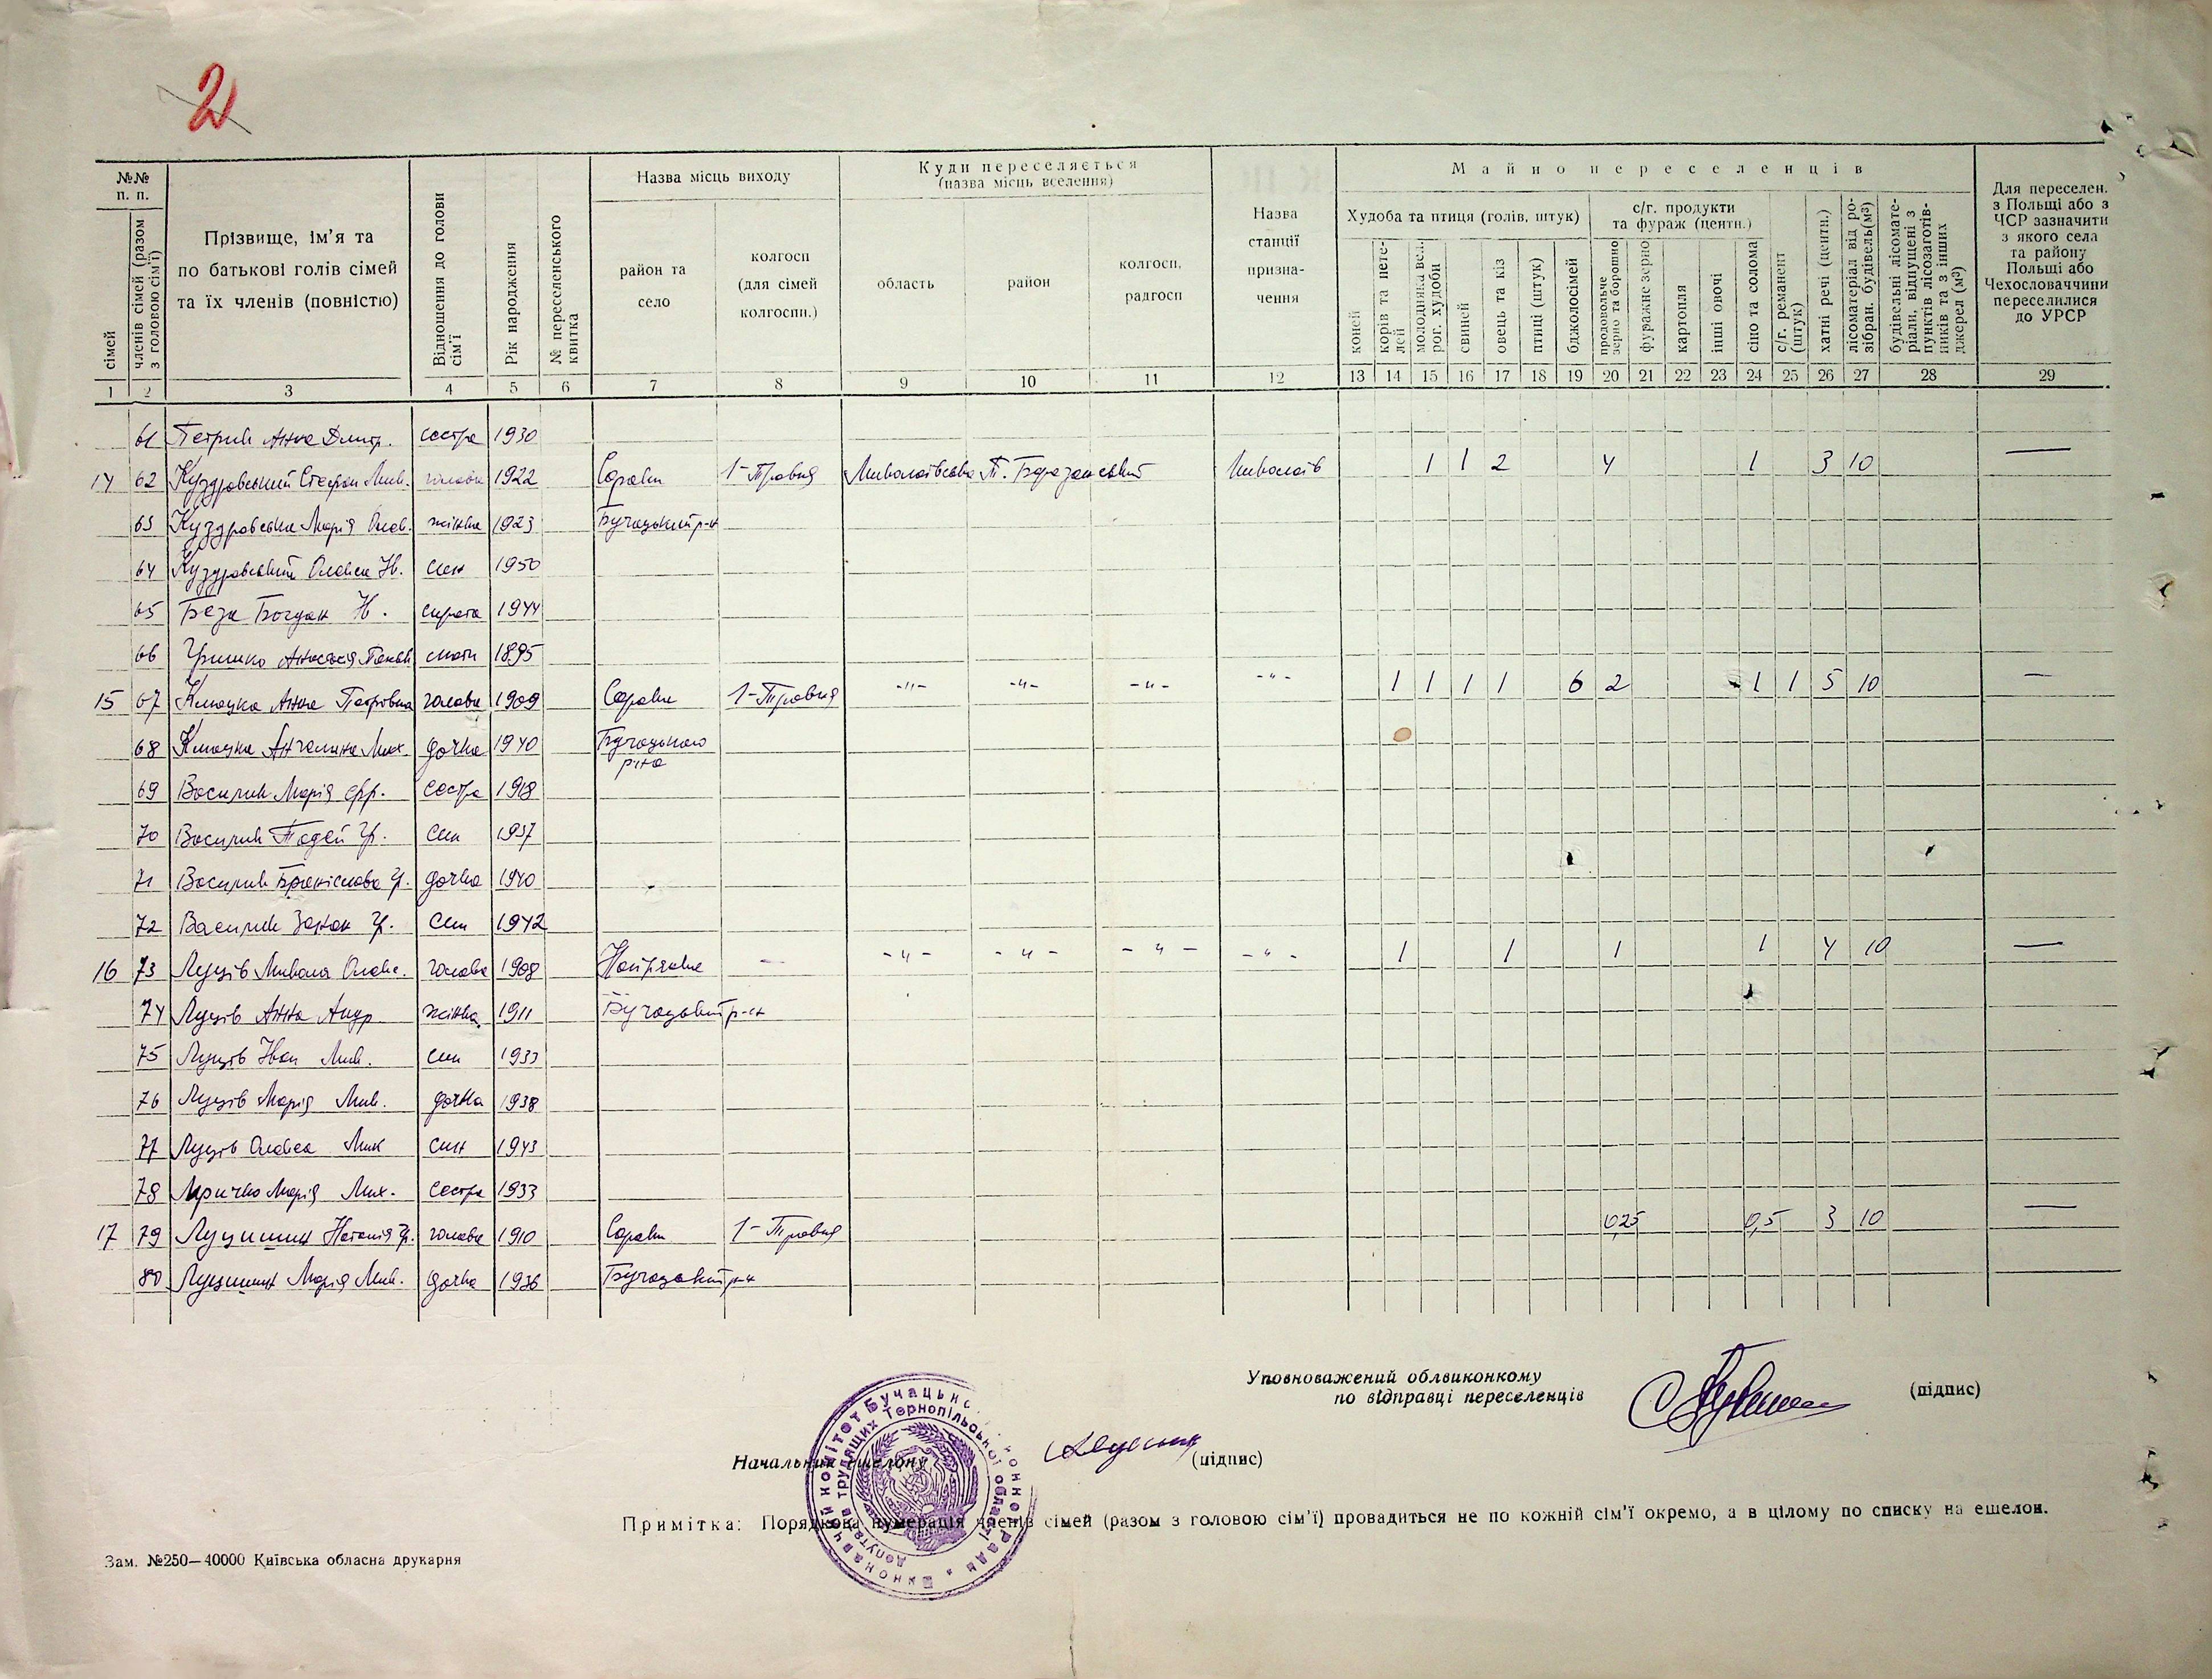 2
№№ п. п.
сімей
членів сімей (разом з головою сім'ї)
Прізвище, ім'я та
по батькові голів сімей
та їх членів (повністю)
Відношення до голови сім'ї
Рік народження
№ переселенського квитка
Назва місць виходу
район та село
колгосп (для сімей колгоспн.)
Куди переселяється
(назва місць вселення)
область
район
колгосп, радгосп
Назва станції призна-чення
Майно переселенців
Худоба та птиця (голів, штук)
с/г. продукти та фураж (центн.)
коней
корів та нете-лей
молодняка вел. рог. худоби
свиней
овець та кіз
птиці (штук)
бджолосімей
продовольче зерно та борошно
фуражне зерно
картопля
інші овочі
сіно та солома
с/г. реманент (штук)
хатні речі (центн.)
лісоматеріал від ро-зібран. будівель(м³)
будівельні лісомате-ріали, відпущені з пунктів лісозаготів-ників та з інших джерел (м³)
Для переселен.
з Польщі або з
ЧСР зазначити
з якого села
та району
Польщі або
Чехословаччини
переселилися
до УРСР
1 2 3 4 5 6 7 8 9 10 11 12 13 14 15 16 17 18 19 20 21 22 23 24 25 26 27 28 29
61 Петрик Анна Дмитр. сестра 1930
14 62 Куздровський Стефан Мик. голова 1922 Сороки 1-Травня Миколаївська Т. Березанський Миколаїв 1 1 2 4 1 3 10 —
63 Куздровська Марія Олек. жінка 1923 Бучацький р-н
64 Куздровський Олекса Н. син 1950
65 Беза Богдан Н. сирота 1944
66 Гришко Анастасія мати 1895
15 67 Клюцка Анна Петрівна голова 1909 Сороки 1-Травня -"- -"- -"- -"- 1 1 1 1 6 2 1 1 5 10 —
68 Клюцка Ангелина Мих. дочка 1940 Бучацького р-на
69 Василик Марія сестра 1918
70 Василик Тадей Гр. син 1937
71 Василик Броніслава Гр. дочка 1940
72 Василик Гр. син 1942
16 73 Луців Микола Олек. голова 1908 — -"- -"- -"- -"- 1 1 1 1 4 10 —
74 Луців Анна Андр жінка 1911 Бучацький р-н
75 Луців Іван Мик. син 1933
76 Луців Марія Мик. дочка 1938
77 Луців Олекса Мик син 1943
78 Марія Мих. сестра 1933
17 79 Луцишин Наталія Гр. голова 1910 Сороки 1-Травня 0,25 0,5 3 10 —
80 Луцишин Марія Мик. дочка 1936 Бучацький р-н
Уповноважений облвиконкому
по відправці переселенців
(підпис)
Начальник ешелону
(підпис)
Примітка: Порядкова нумерація членів сімей (разом з головою сім'ї) провадиться не по кожній сім'ї окремо, а в цілому по списку на ешелон.
Зам. №250—40000 Київська обласна друкарня